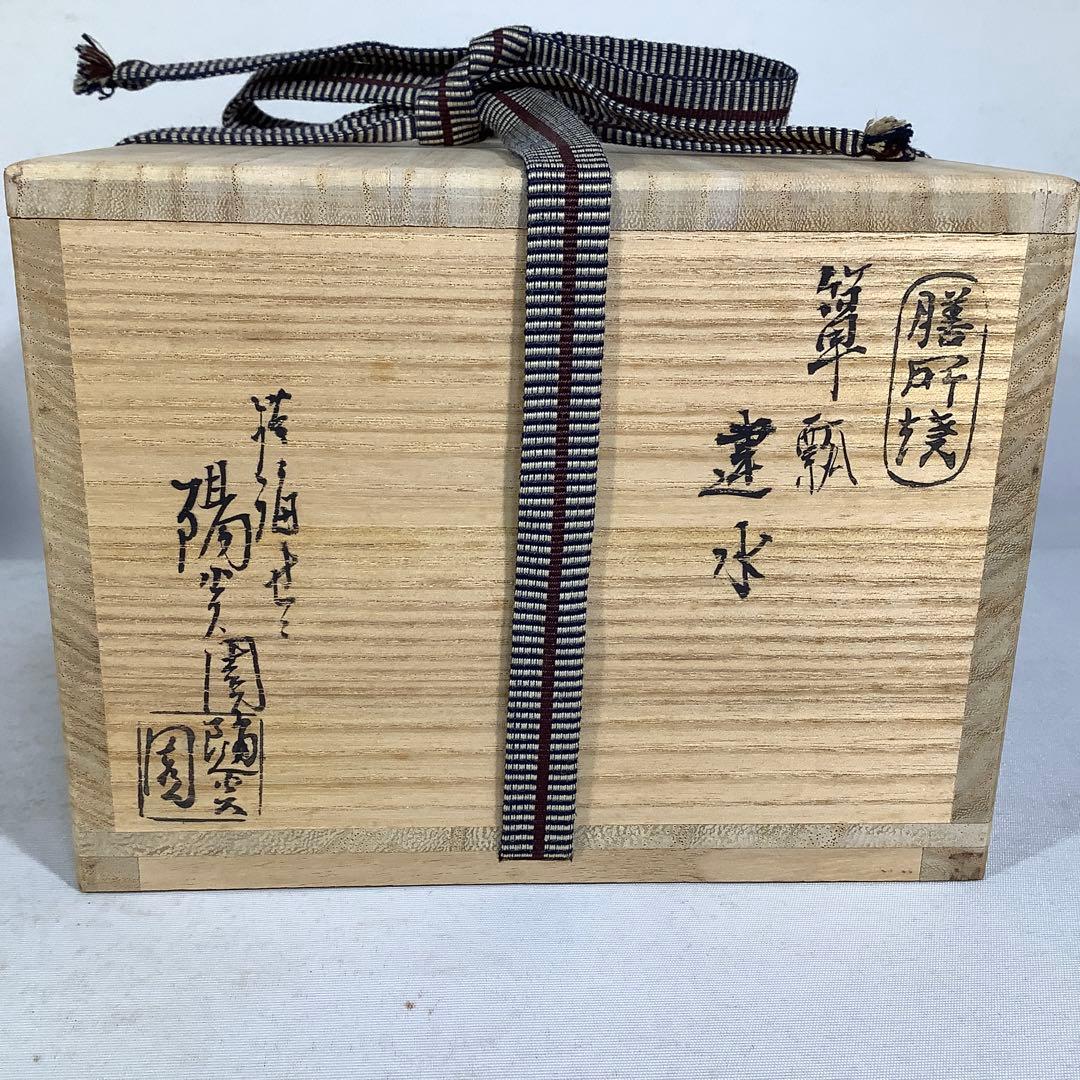 膳所焼
箪瓢
建水
陽炎園
陽炎園